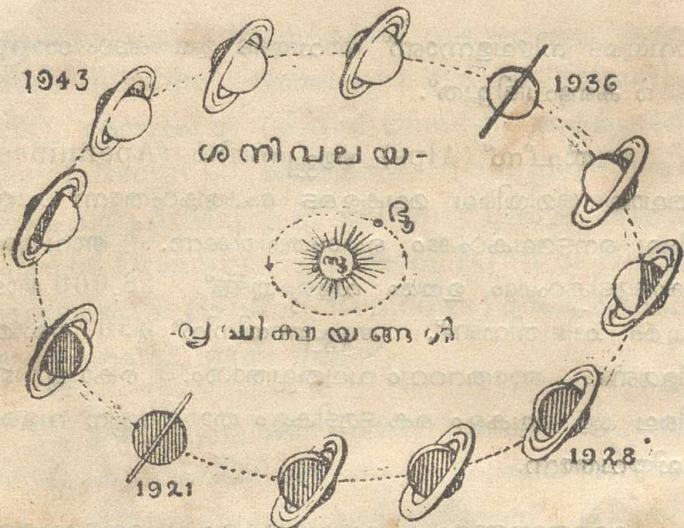 1943
1936
ശനിവലയ-
ഭൂ
സൂ
വൃദ്ധിക്ഷയങ്ങൾ
1928
1921